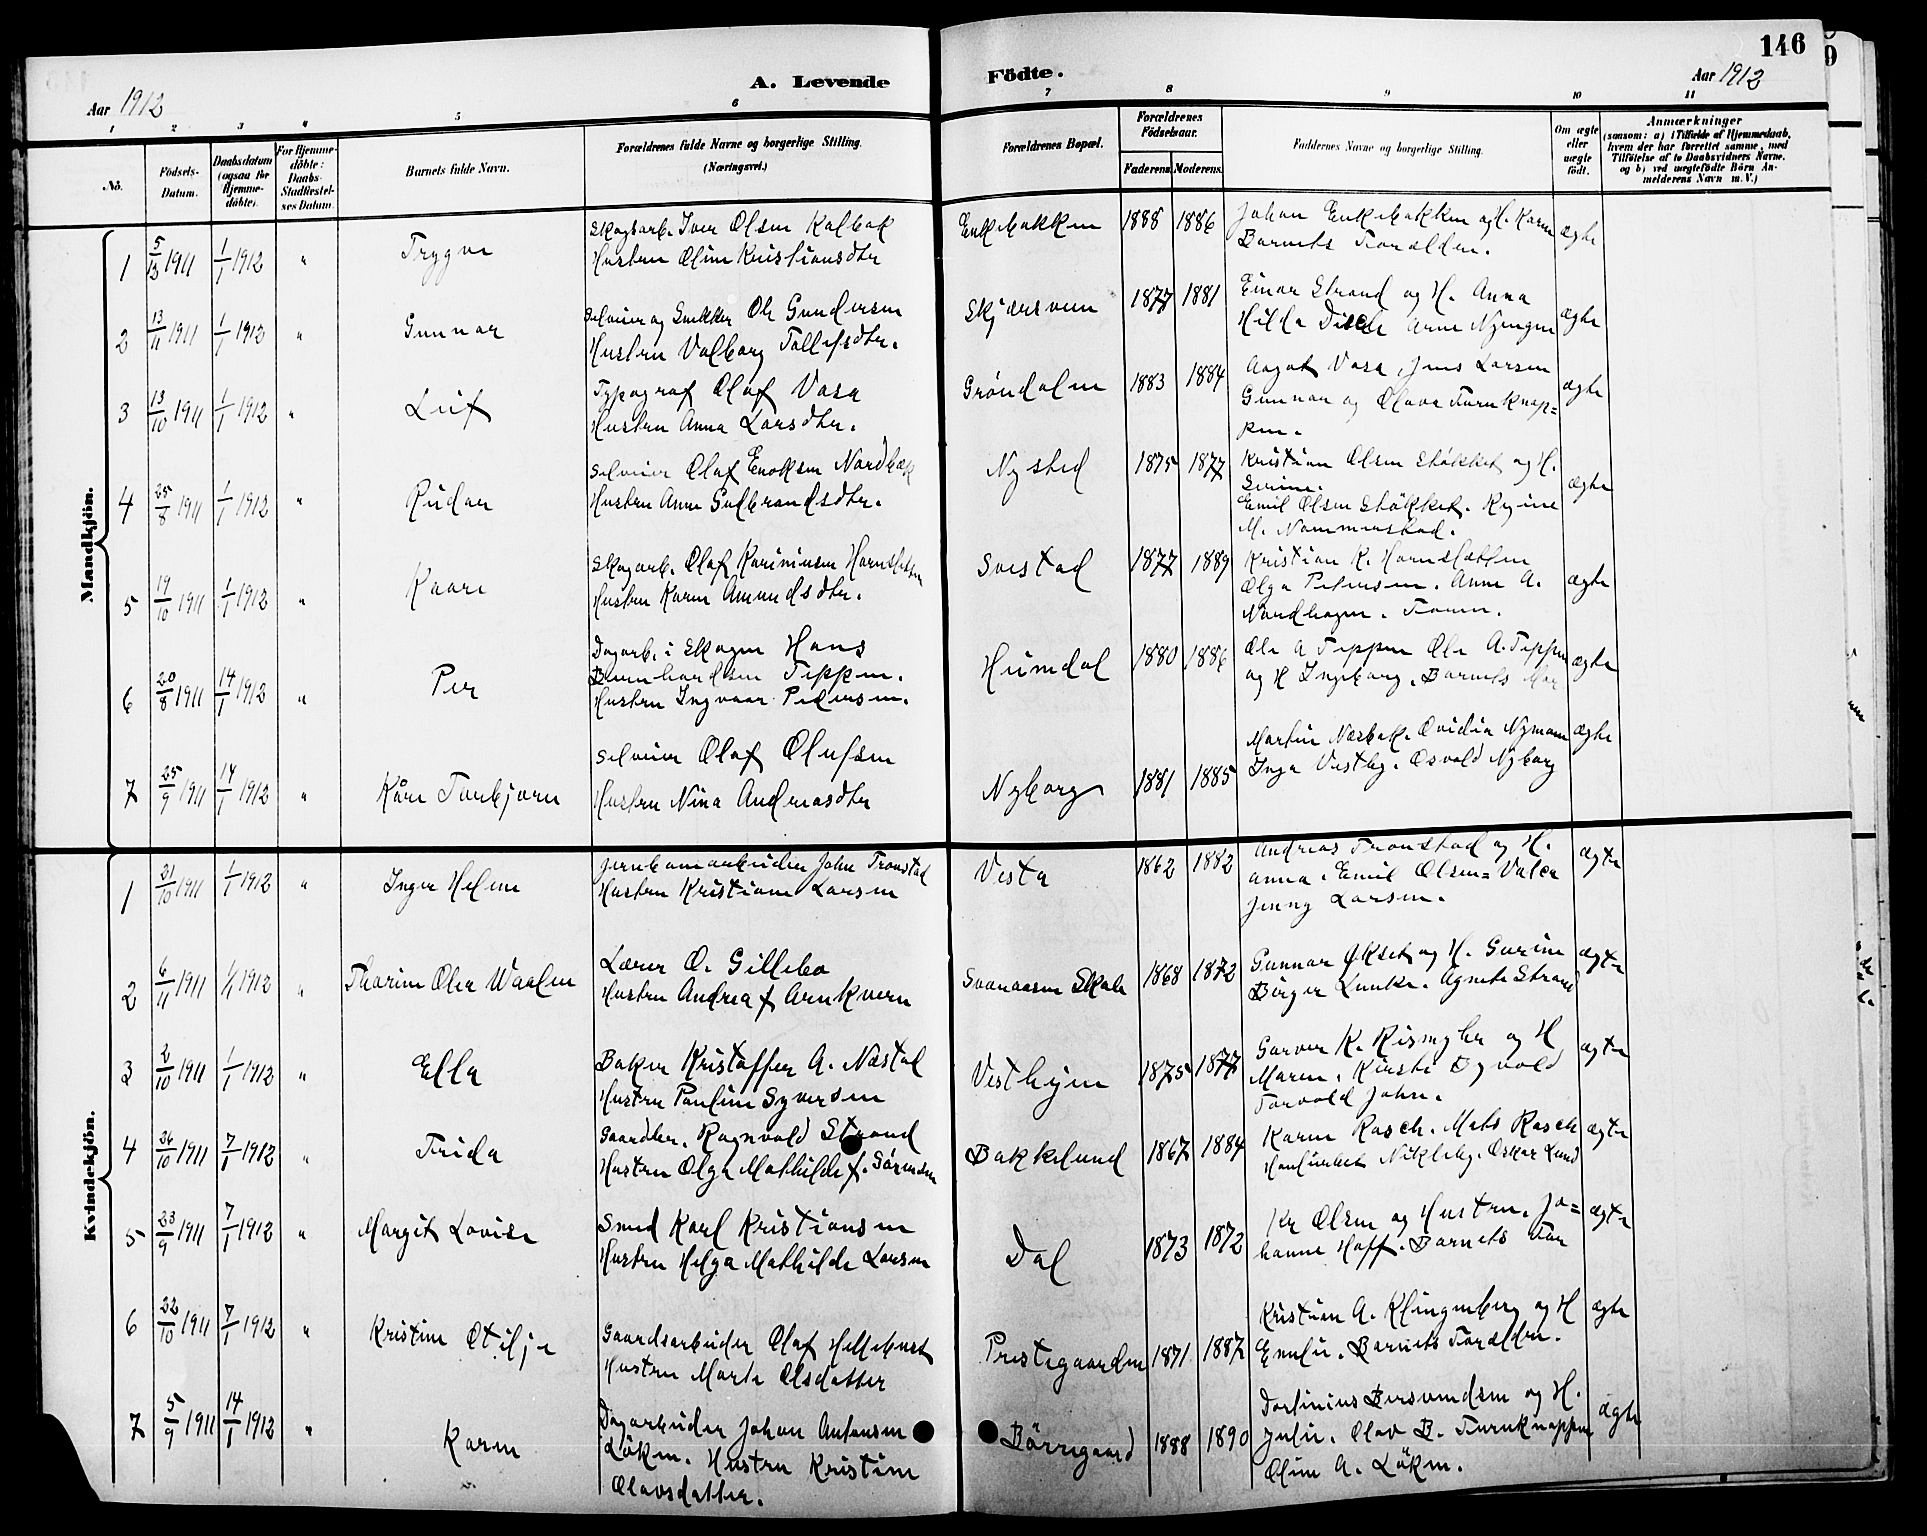 146
A. Levende Födte.
Aar 1912
Aar 1912
1 2 3 4 5 6 7 8 9 10 11
No.
Födsels-
Datum.
Daabsdatum
(ogsaa for
Hjemme-
döbte).
For Hjemme-
döbte:
Daabs-
Stadfæstel-
ses Datum.
Barnets fulde Navn.
Forældrenes fulde Navne og borgerlige Stilling.
(Næringsvei.)
Forældrenes Bopæl.
Forældrenes
Födselsaar.
Faderens.
Moderens.
Faddernes Navne og borgerlige Stilling.
Om ægte
eller
uægte
födt.
Anmærkninger
(saasom: a) i Tilfælde af Hjemmedaab,
hvem der har forrettet samme, med
Tilföielse af to Daabsvidners Navne.
og b) ved uægtefödte Börn An-
melderens Navn m. V.)
Mandkjön.
1 5/12 1911 1/1 1912 " Trygve
Skogsarb. Iver Olsen Kalbak
Hustru Oline Kristiansdtr
Enkebakken 1888 1886
Johan Enkebakken og H. Karen
Barnets Forældre.
ægte
2 13/11 1911 1/1 1912 " Gunnar
Selveier og Snekker Ole Gundersen
Hustru Valborg Tollefsdtr.
Skjærsveen 1877 1881
Einar Strand og H. Anna
Hilda Disch Arne Nyengen
ægte
3 13/10 1911 1/1 1912 " Leif
Typograf Olaf Vasa
Hustru Anna Larsdtr.
Gröndalen 1883 1884
Aagot Vasa, Jens Larsen
Gunnar og Olava Furuknap=
pen.
ægte
4 25/8 1911 1/1 1912 " Reidar
Selveier Olaf Enoksen Nordbæk
Hustru Anne Gulbrandsdtr.
Nysted 1875 1877
Kristian Olsen Stökket og H.
Serine.
Emil Olsen Stökket.
ægte
5 19/10 1911 1/1 1912 " Kaare
Skogarb. Olaf Kariniusen Hornsletten
Hustru Karen Amundsdtr.
1877 1889
Kristian K. Hornsletten
Olga Petersen. Anne A.
Nordhagen.
ægte
6 20/8 1911 14/1 1912 " Per
Dagarb. i Skogen Hans
Bernhardsen Teppen.
Hustru Ingvaar Petersen.
1880 1886
Ole A Teppen Ole A. Teppen
og H Ingeborg. Barnets Mor
ægte
7 25/9 1911 14/1 1912 " Kåre Torbjørn
Selveier Olaf Olufsen
Hustru Nina Andreasdtr
Nyborg 1881 1885
Martin Næsbak. Ovidia Nymoen
Inga Vestby. Osvald Nyborg
ægte
Kvindekjön.
1 31/10 1911 1/1 1912 " Inger Helene
Jernbanearbeider John Tronstad
Hustru Kristiane Larsen
Vesta 1862 1882
Andreas Tronstad og H.
Anna. Emil Olsen=
Jenny Larsen.
ægte
2 6/11 1911 1/1 1912 " Thorine Olea Waalen
Lærer O. Gillebo
Hustru Andrea f Arnkværn
Svanaasen Skole 1868 1872
Gunnar Økset og H. Gurine
Birger Lunke. Agnete Strand
ægte
3 2/10 1911 1/1 1912 " Ella
Baker Kristoffer A. Næstad
Hustru Pauline Syversen
Vestheim 1875 1877
Garver K. Rismyhr og H
Maren. Kirsti
Torvald John.
ægte
4 26/10 1911 7/1 1912 " Frida
Gaardbr. Ragnvald Strand
Hustru Olga Mathilde f. Sörensen
Bakkelund 1867 1884
Karen Rasch. Mats Rasch
Nikleby. Oskar Lund
ægte
5 23/9 1911 7/1 1912 " Margit Lovise
Smed Karl Kristiansen
Hustru Helga Mathilde Larsen
Dal 1873 1872
Kr Olsen og Hustru. Jo=
hanne Hoff. Barnets Far
ægte
6 22/10 1911 7/1 1912 " Kristine Otilje
Gaardsarbeider Olaf Hellebust
Hustru Marte Olsdatter
Prestegaarden 1871 1887
Kristian A. Klingenberg og H
Emelie. Barnets Forældre.
ægte
7 5/9 1911 14/1 1912 " Karen
Dagarbeider Johan Antonsen
Löken. Hustru Kristine
Olavsdatter.
Börregaard 1888 1890
Dortinius Bersvendsen og H.
Julie. Olav B. Furuknappen
Oline A. Löken.
ægte